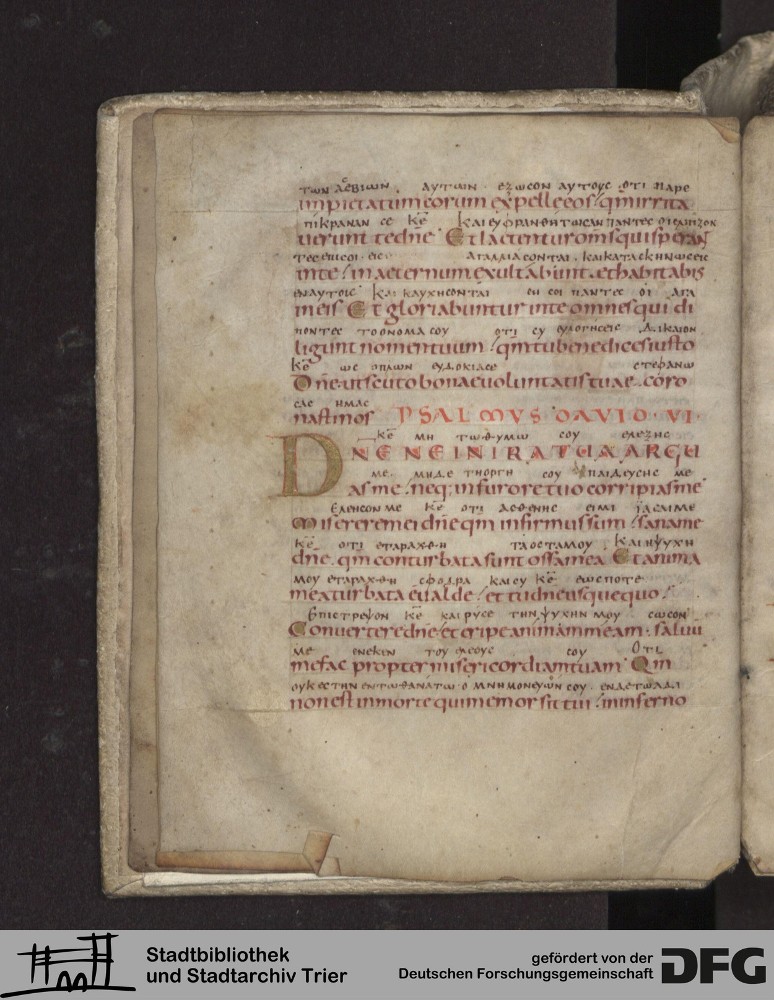 των ασεβιων · αυτων · εξωσον αυτους οτι παρε
impietatum eorum expelle eos qm irrita
πικραναν σε κε Και ευφρανθητωσαν παντες οι ελπιζον
uerunt te dne Et laetentur oms qui sperant
τες επι σοι · εις αγαλλιασονται · και κατασκηνωσεις
in te in aeternum exultabunt · et habitabis
εν αυτοις Και καυχησονται εν σοι παντες οι αγα
in eis Et gloriabuntur in te omnes qui di
πωντες το ονομα σου οτι συ ευλογησεις δικαιον
ligunt nomen tuum qm tu benedices iusto
κε ως οπλων ευδοκιας εστεφανω
Dne ut scuto bonae uoluntatis tuae · coro
σας ημας
nasti nos PSALMVS · DAVID · VI ·
κε μη τω θυμω σου ελεξης
DNE NE IN IRA TUA ARGU
με · μηδε τη οργη σου παιδευσης με
as me neq; in furore tuo corripias me
Ελεησον με κε οτι ασθενης ειμι ιασαι με
Miserere mei dne qm infirmus sum sana me
κε οτι εταραχθη τα οστα μου Και η ψυχη
dne · qm conturbata sunt ossa mea Et anima
μου εταραχθη σφοδρα και συ κε εως ποτε
mea turbata e ualde et tu dne usquequo
Επιστρεψον κε και ρυσε την ψυχην μου σωσον
Conuertere dne et eripe animam meam · saluu
με ενεκεν του ελεους σου Οτι
me fac propter misericordiam tuam Qm
ουκ εστην εν τω θανατω ο μνημονευων σου · εν δε τω αδι
non est in morte qui memor sit tui in inferno
Stadtbibliothek
und Stadtarchiv Trier
gefördert von der
Deutschen Forschungsgemeinschaft
DFG